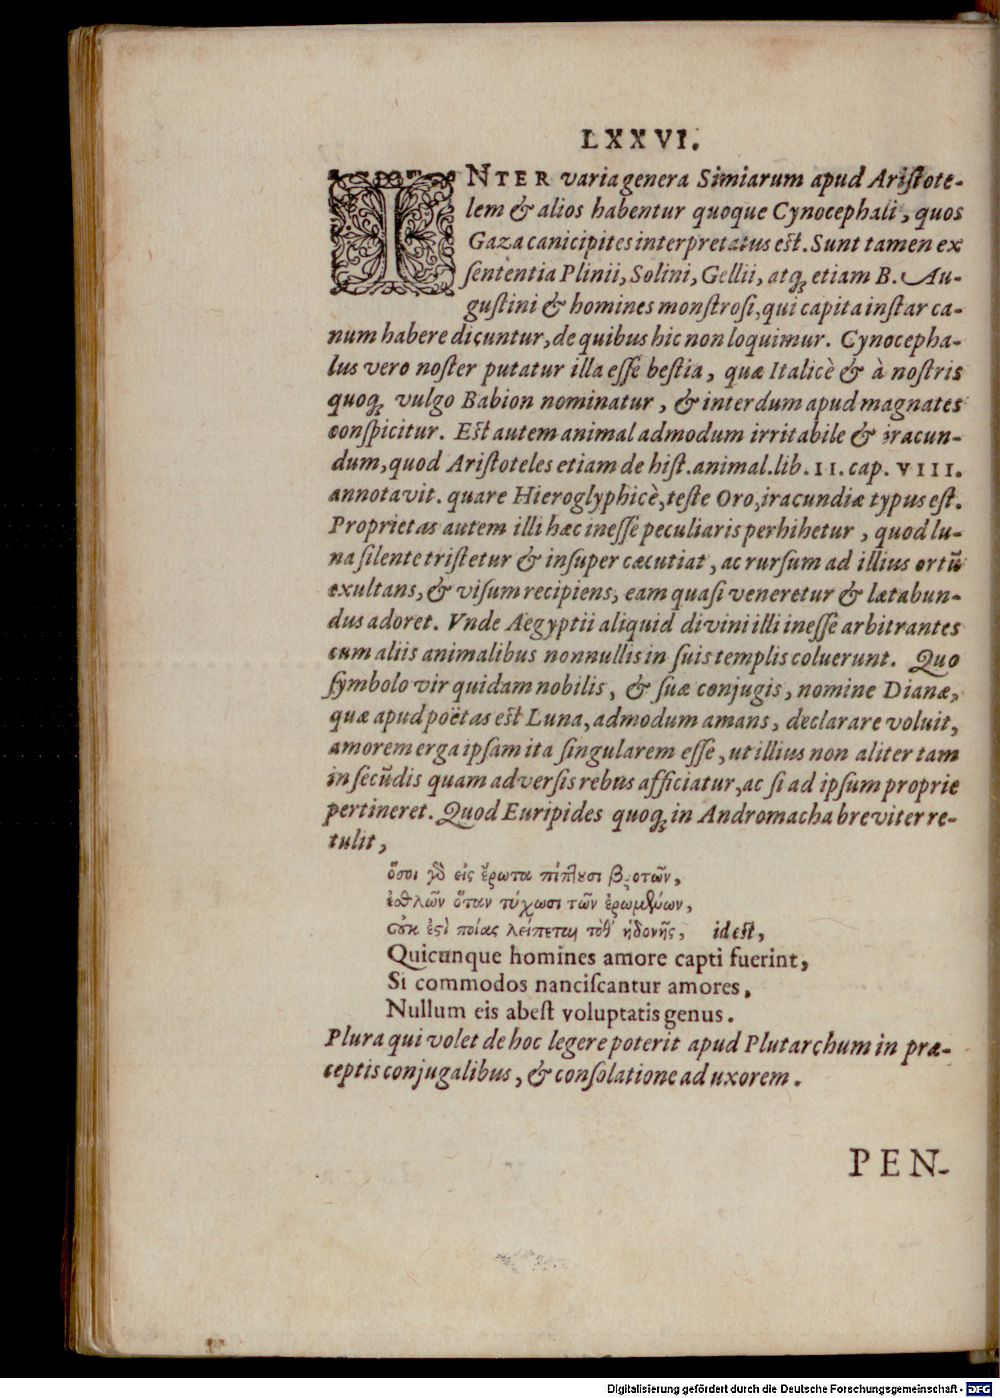 LXXVI.
INTER varia genera Simiarum apud Aristote-
lem & alios habentur quoque Cynocephali, quos
Gaza canicipites interpretatus est. Sunt tamen ex
sententia Plinii, Solini, Gellii, atq; etiam B. Au-
gustini & homines monstrosi, qui capita instar ca-
num habere dicuntur, de quibus hic non loquimur. Cynocepha-
lus vero noster putatur illa esse bestia, quæ Italicè & à nostris
quoq; vulgo Babion nominatur, & interdum apud magnates
conspicitur. Est autem animal admodum irritabile & iracun-
dum, quod Aristoteles etiam de hist. animal. lib. II. cap. VIII.
annotavit. quare Hieroglyphicè, teste Oro, iracundiæ typus est.
Proprietas autem illi hæc inesse peculiaris perhihetur, quod lu-
na silente tristetur & insuper cæcutiat, ac rursum ad illius ortũ
exultans, & visum recipiens, eam quasi veneretur & lætabun-
dus adoret. Vnde Aegyptii aliquid divini illi inesse arbitrantes
cum aliis animalibus nonnullis in suis templis coluerunt. Quo
symbolo vir quidam nobilis, & suæ conjugis, nomine Dianæ,
quæ apud poëtas est Luna, admodum amans, declarare voluit,
amorem erga ipsam ita singularem esse, ut illius non aliter tam
in secũdis quam adversis rebus afficiatur, ac si ad ipsum proprie
pertineret. Quod Euripides quoq; in Andromacha breviter re-
tulit,
ὅσοι γὸ εἰς ἔρωτα πίπτουσι βροτῶν,
ἐσθλῶν ὅταν τύχωσι τῶν ἐρωμένων,
οὐκ ἐστὶ ποίας λείπεται τόθ' ἡδονῆς, id est,
Quicunque homines amore capti fuerint,
Si commodos nanciscantur amores,
Nullum eis abest voluptatis genus.
Plura qui volet de hoc legere poterit apud Plutarchum in præ-
ceptis conjugalibus, & consolatione ad uxorem.
PEN-
Digitalisierung gefördert durch die Deutsche Forschungsgemeinschaft - DFG